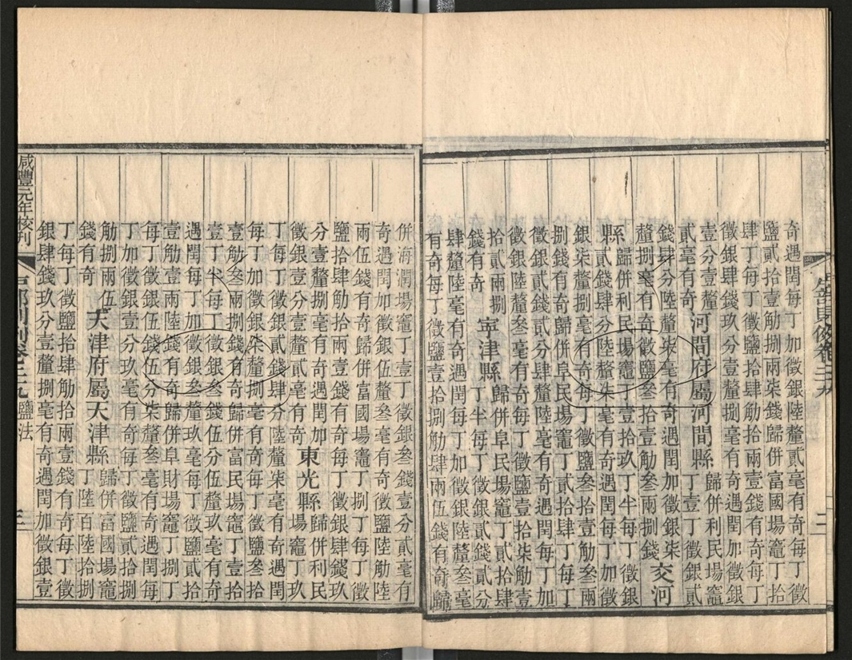 奇遇閏每丁加徵銀陸釐貳毫有奇每丁徵
鹽貳拾壹觔捌兩柒錢歸併富國場竈丁拾
肆丁每丁徵鹽拾肆觔拾兩壹錢有奇每丁
徵銀肆錢玖分壹釐捌毫有奇遇閏加徵銀
壹分壹釐 歸併利民場竈
貳毫有奇河間府屬河間縣丁壹丁徵銀貳
錢肆分陸釐柒毫有奇遇閏加徵銀柒
釐捌毫有奇每丁徵鹽叁拾壹觔叁兩捌錢交河
縣歸併利民場竈丁壹拾玖丁半每丁徵銀
貳錢肆分陸釐柒毫有奇遇閏每丁加徵
銀柒釐捌毫有奇每丁徵鹽叁拾壹觔叁兩
捌錢有奇歸併阜民場竈丁貳拾肆丁每丁
徵銀貳錢貳分肆釐陸毫有奇遇閏每丁加
徵銀陸釐叁毫有奇每丁徵鹽壹拾柒觔
拾貳兩捌 歸併阜民場竈丁貳拾肆
錢有奇 寧津縣丁半每丁徵銀貳錢貳分
肆釐陸毫有奇遇閏每丁加徵銀陸釐叁毫
有奇每丁徵鹽壹拾捌觔肆兩伍錢有奇歸
卷二十九
二
併海潤場竈丁壹丁徵銀叁錢壹分貳毫有
奇遇閏加徵銀玖釐叁毫有奇徵鹽陸觔陸
兩伍錢有奇歸併富國場竈丁捌丁每丁徵
鹽拾肆觔拾兩壹錢有奇每丁徵銀肆錢玖
分壹釐捌毫有奇遇閏加 歸併利民
徵銀壹分壹釐貳毫有奇東光縣場竈丁玖
丁每丁徵銀貳錢肆分陸釐柒毫有奇遇閏
每丁加徵銀柒釐捌毫有奇每丁徵鹽叁拾
壹觔叁兩捌錢有奇歸併富民場竈丁壹拾
壹丁半每丁徵銀叁錢伍分伍釐叁毫有奇
遇閏每丁加徵銀叁分玖毫有奇每丁徵鹽貳拾
壹觔壹兩陸錢有奇歸併阜財場竈丁捌丁
每丁徵銀伍錢伍分柒釐叁毫有奇遇閏每
丁加徵銀壹分玖毫有奇每丁徵鹽貳拾
觔捌兩伍 歸併富國場竈
錢有奇 天津府屬天津縣丁陸百陸拾捌
丁每丁徵鹽拾肆觔拾兩壹錢有奇每丁徵
銀肆錢玖分壹釐捌毫有奇遇閏加徵銀壹
咸豐元年校刊
戶部則例卷二十九 鹽法
三